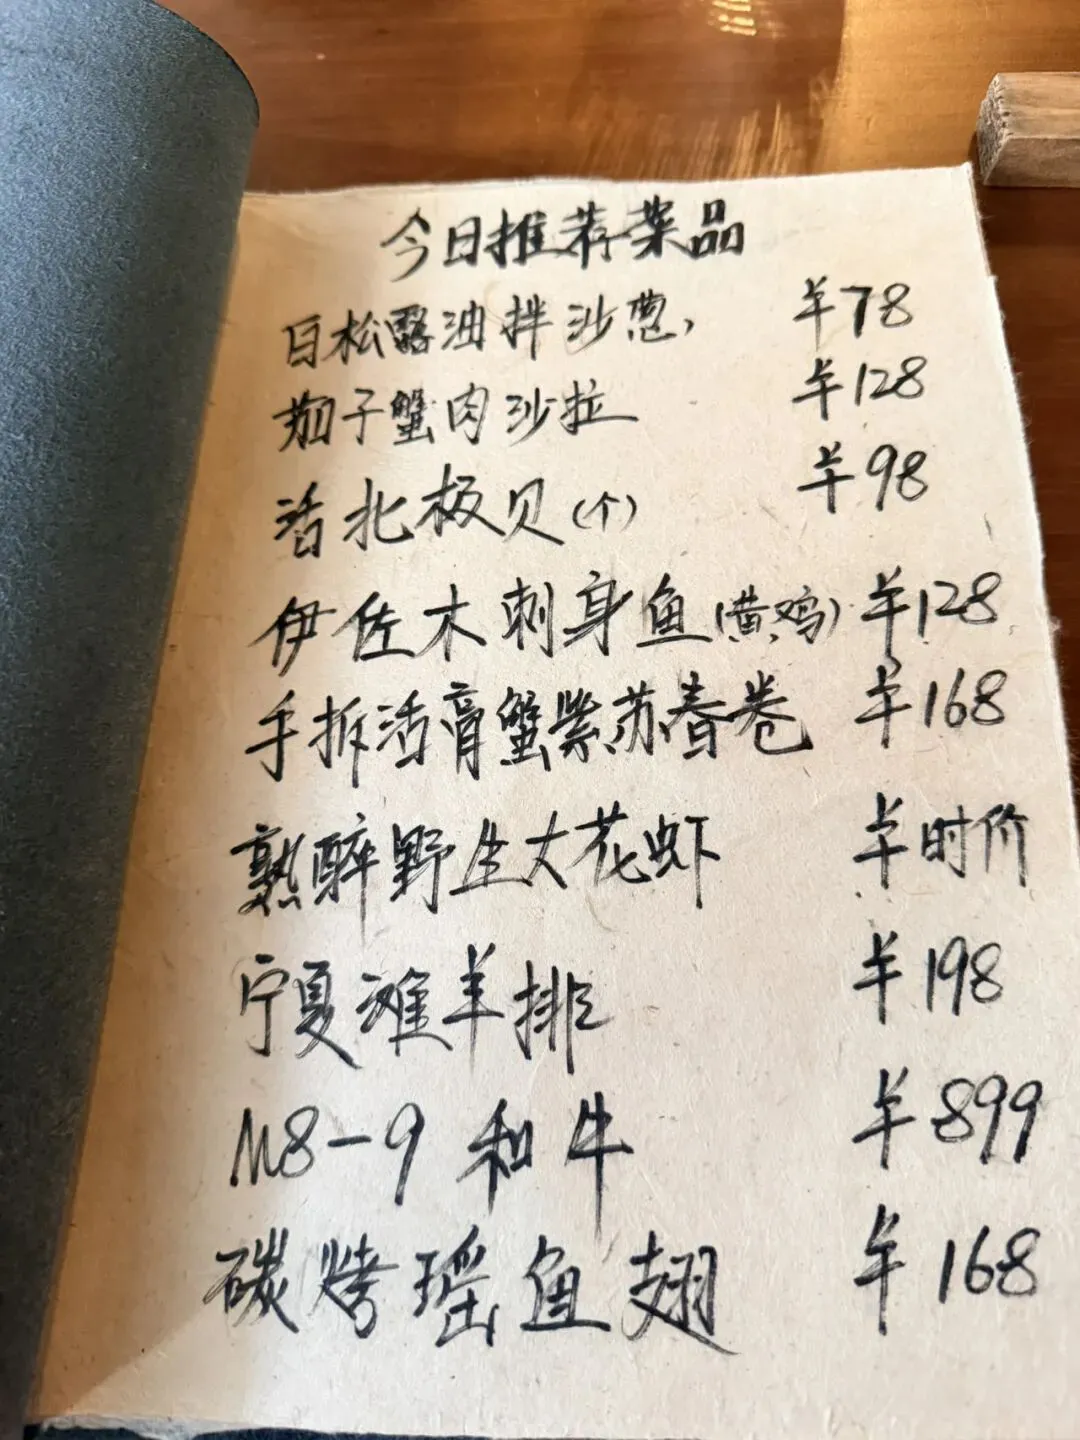 今日推荐菜品
白松露油拌沙葱, ¥78
茄子蟹肉沙拉 ¥128
活北极贝(个) ¥98
伊佐木刺身鱼(黄鸡) ¥128
手拆活膏蟹紫苏春卷 ¥168
熟醉野生大花虾 ¥时价
宁夏滩羊排 ¥198
M8-9 和牛 ¥899
碳烤瑶鱼翅 ¥168